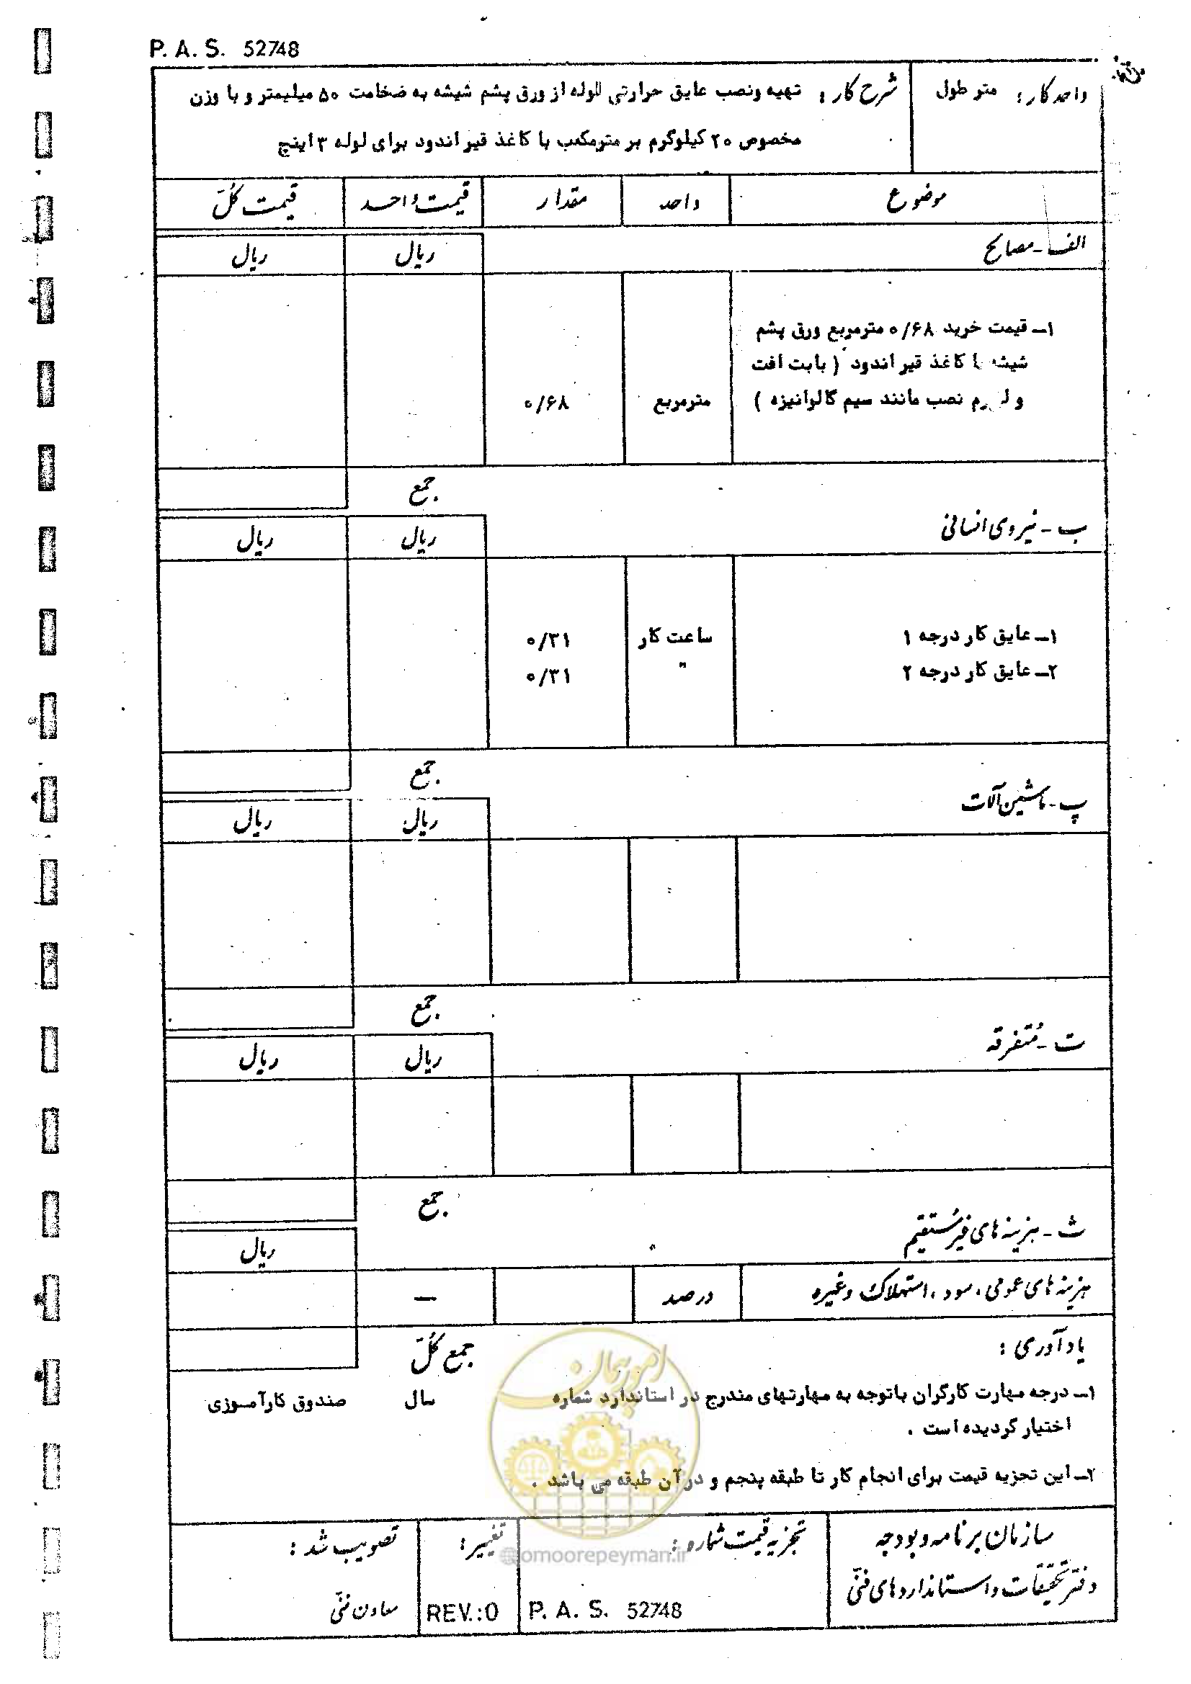 P. A. S. 52748
واحد کار : متر طول
شرح کار : تهیه ونصب عایق حرارتی لوله از ورق پشم شیشه به ضخامت ۵۰ میلیمتر و با وزن
مخصوص ۲۰ کیلوگرم بر مترمکعب با کاغذ قیر اندود برای لوله ۳ اینچ
موضوع واحد مقدار قیمت واحد قیمت کل
الف - مصالح ریال ریال
۱ـ قیمت خرید ۰/۶۸ مترمربع ورق پشم
شیشه با کاغذ قیر اندود ( بابت افت
و لوازم نصب مانند سیم گالوانیزه ) مترمربع ۰/۶۸
جمع
ب - نیروی انسانی ریال ریال
۱ـ عایق کار درجه ۱ ساعت کار ۰/۳۱
۲ـ عایق کار درجه ۲ " ۰/۳۱
جمع
پ - ماشین آلات ریال ریال
جمع
ت - متفرقه ریال ریال
جمع
ث - هزینه های غیرمستقیم ریال
هزینه های عمومی ، سود ، استهلاک وغیره درصد —
جمع کل
یادآوری :
۱ـ درجه مهارت کارگران باتوجه به مهارتهای مندرج در استاندارد شماره سال صندوق کارآموزی
اختیار گردیده است .
۲ـ این تجزیه قیمت برای انجام کار تا طبقه پنجم و درآن طبقه می باشد .
امور پیمان
@omoorepeyman.ir
سازمان برنامه و بودجه
دفتر تحقیقات و استانداردهای فنی
تجزیه قیمت شماره :
P. A. S. 52748
تغییر :
REV.:0
تصویب شد :
معاون فنی